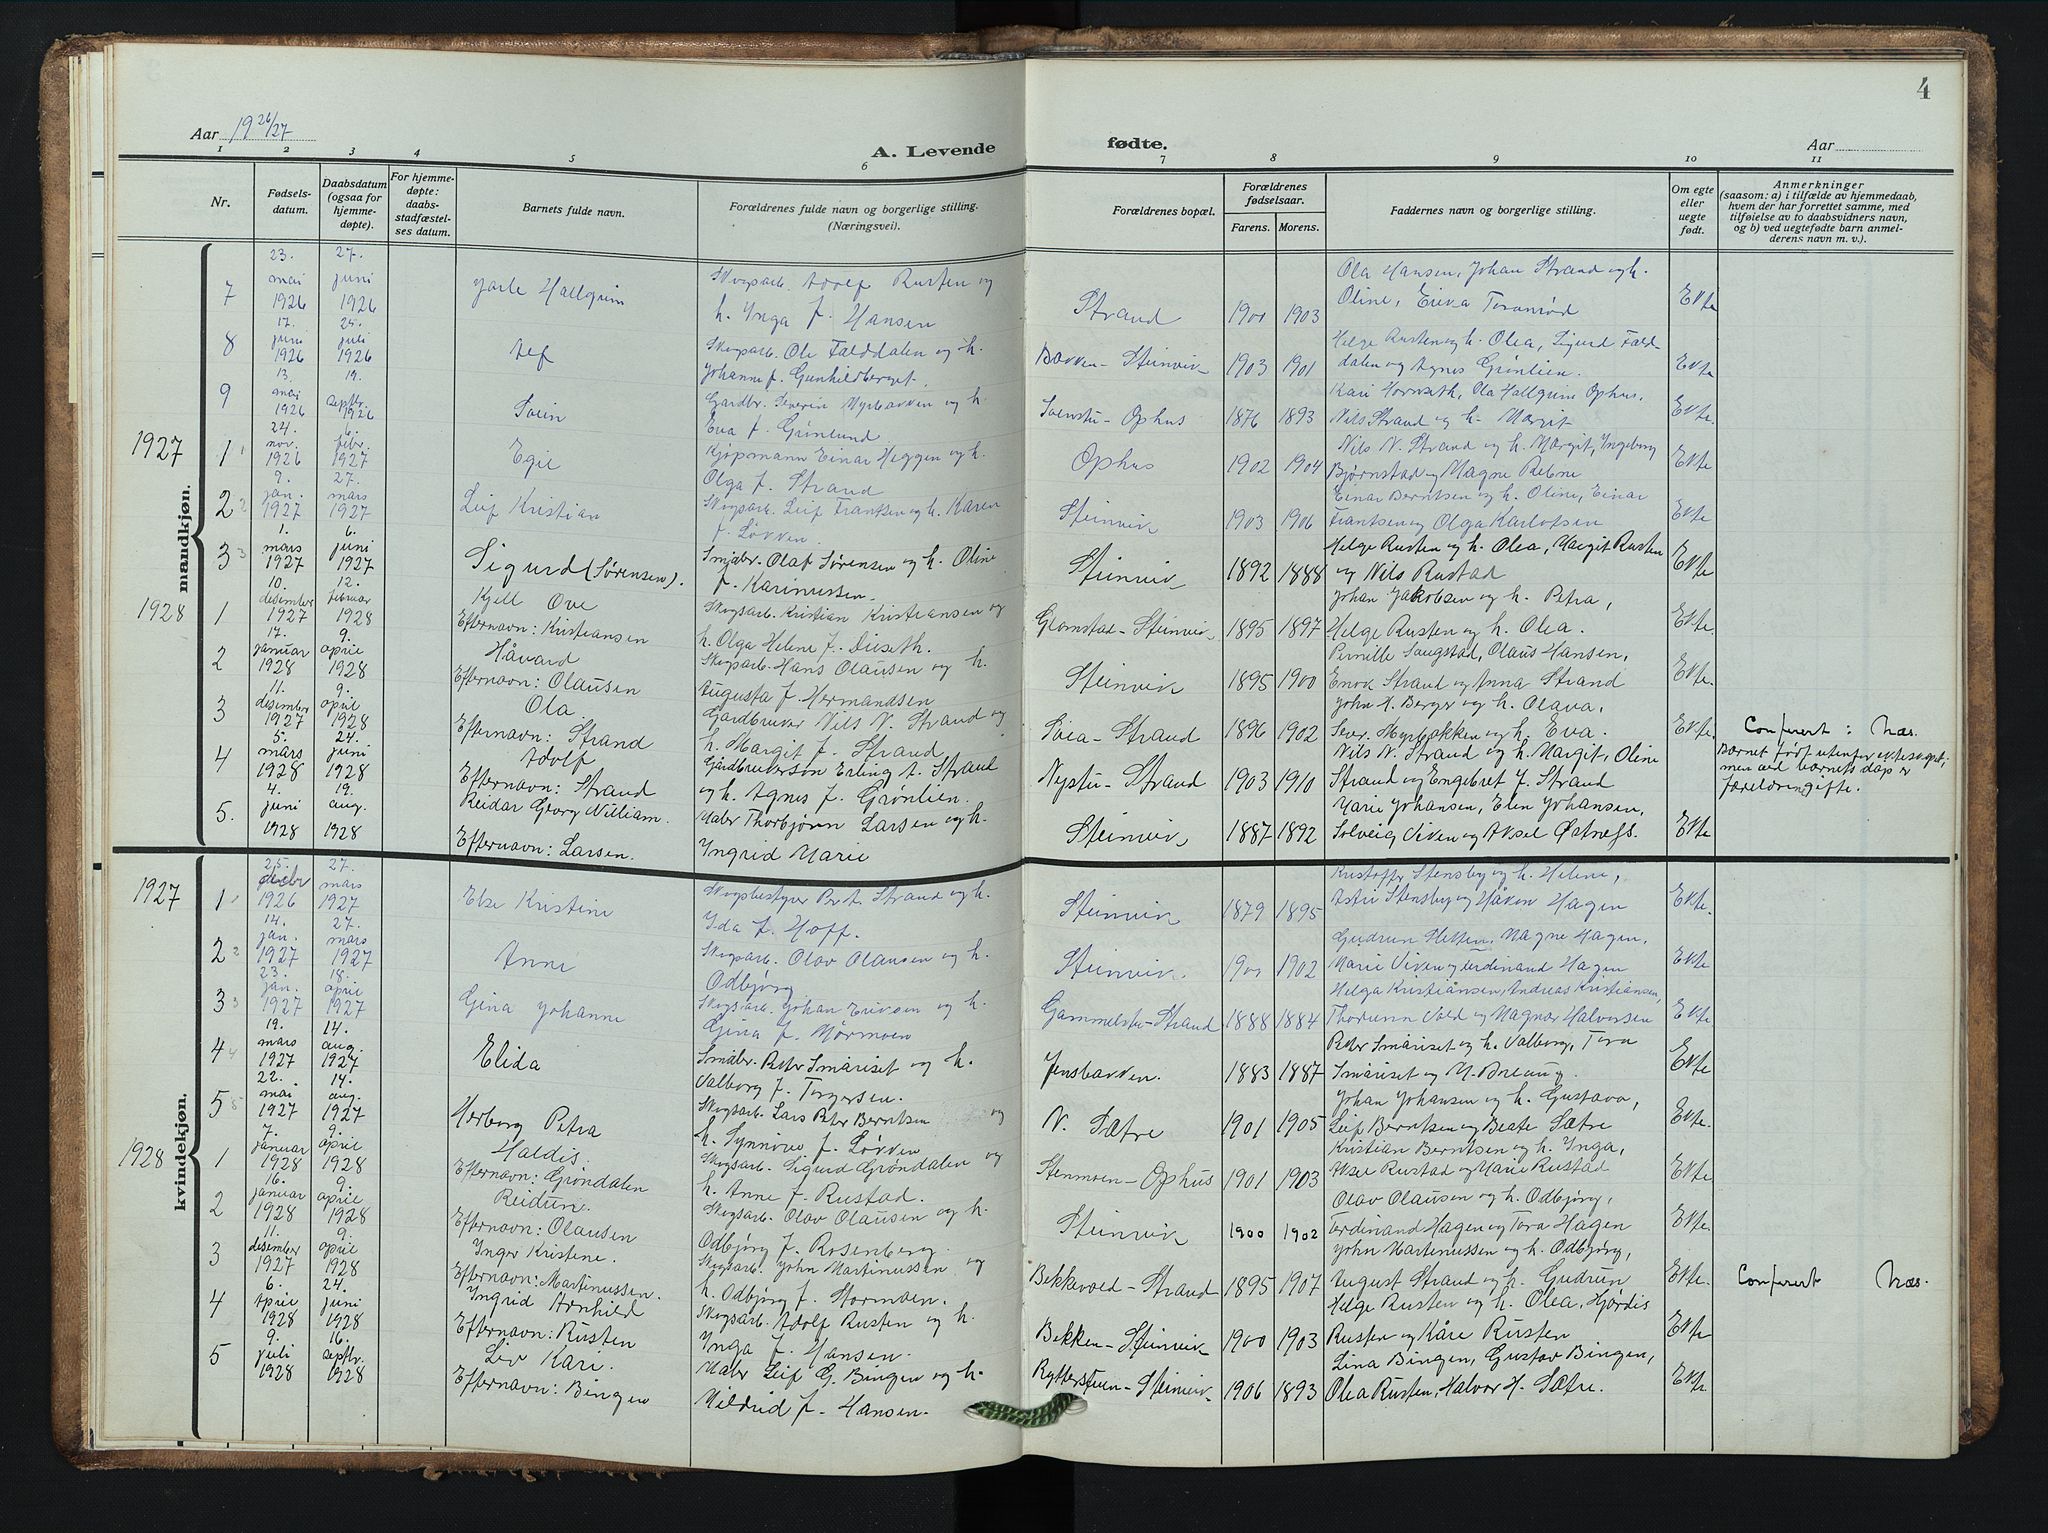 4
Aar 19 26/27
A. Levende fødte.
Aar
1 2 3 4 5 6 7 8 9 10 11
Nr.
Fødsels-
datum.
Daabsdatum
(ogsaa for
hjemme-
døpte).
For hjemme-
døpte:
daabs-
stadfæstel-
ses datum.
Barnets fulde navn.
Forældrenes fulde navn og borgerlige stilling.
(Næringsvei).
Forældrenes bopæl.
Forældrenes
fødselsaar.
Farens. Morens.
Faddernes navn og borgerlige stilling.
Om egte
eller
uegte
født.
Anmerkninger
(saasom: a) i tilfælde av hjemmedaab,
hvem der har forrettet samme, med
tilføielse av to daabsvidners navn,
og b) ved uegtefødte barn anmel-
derens navn m. v.).
mandkjøn.
7 23. mai 1926 27. juni 1926 Jarle Hallgrim
Skogsarb. Adolf Rusten og
h. Inga f. Hansen
Strand 1900 1903
Ola Hansen, Johan Strand og h.
Oline,
Ekte
8 17. juni 1926 25. juli 1926
Skogsarb. Ole Falddalen og h.
Johanne f. Gunhildberget.
Bakken - Steinvik 1903 1901
Helge Rusten og h. Olea, Sigurd Fald-
dalen og Agnes Grønlien.
Ekte
9 13. mai 1926 19. septbr. 1926 Svein
Gardbr. Severin Myrbakken og h.
Eva f. Grønlund.
Ophus 1876 1893
Kari Hornseth, Ola Hallgrim Ophus,
Nils Strand og h. Margit
Ekte.
1927
1 24. nov. 1926 6. febr. 1927 Egil
Kjøpmann Einar Heggen og h.
Olga f. Strand
Ophus 1902 1904
Nils N. Strand og h. Margit, Ingeborg
Bjørnstad og Magne
Ekte
2 9. jan. 1927 27. mars 1927 Leif Kristian
Skogsarb. Leif Frantsen og h. Karen
f. Løkken.
Steinvik 1903 1906
Einar Berntsen og h. Oline, Einar
Frantsen og Olga Karlotsen
Ekte
3 1. mars 1927 6. juni 1927 Sigurd (Sørensen).
Småbr. Olaf Sørensen og h. Oline
f. Karinussen.
Steinvik 1892 1888
Helge Rusten og h. Olea, Margit Rusten
og Nils Rustad
Ekte
1928
1 10. desember 1927 12. februar 1928 Kjell Ove
Efternavn: Kristiansen
Skogsarb. Kristian Kristiansen og
h. Olga Helene f. Diseth.
Glomstad - Steinvik 1895 1897
Johan Jakobsen og h. Petra,
Helge Rusten og h. Olea.
Ekte.
2 17. januar 1928 9. april 1928 Håvard
Efternavn: Olausen
Skogsarb. Hans Olausen og h.
Augusta f. Hermandsen
Steinvik 1895 1900
Pernille Saugstad, Olaus Hansen,
Enok Strand og Anna Strand
Ekte.
3 11. desember 1927 9. april 1928 Ola
Efternavn: Strand
Gårdbruker Nils N. Strand og
h. Margit f. Strand
Svea - Strand 1896 1902
John M. Berger og h. Olava,
Sever. Myrbakken og h. Eva.
Ekte
Conferert: Næs.
4 5. mars 1928 24. juni 1928 Adolf
Efternavn: Strand
Gårdbrukersøn Erling A. Strand
og h. Agnes f. Grønlien.
Nystu - Strand 1903 1910
Nils N. Strand og h. Margit, Oline
Strand og Engebret J. Strand
Ekte
Barnet født utenfor ekteskapet,
men ved barnets dåp er
foreldrene gifte.
5. 4. juni 1928 19. aug. 1928 Reidar Georg William.
Efternavn: Larsen.
Maler Thorbjørn Larsen og h.
Ingrid Marie
Steinvik 1887 1892
Marie Johansen, Elen Johansen,
Solveig Viken og Aksel Østness.
Ekte
kvindekjøn.
1927
1 25. decbr 1926 27. mars 1927 Else Kristine
Skogbestyrer Per A. Strand og h.
Ida f. Hoff.
Steinvik 1879 1895
Kristoffer Stensby og h. Helene,
Astri Stensby og Håkon Hagen
Ekte.
2 14. jan. 1927 27. mars 1927 Anne
Skogsarb. Olav Olausen og h.
Odbjørg
Steinvik 1900 1902
Gudrun Hetten, Magne Hagen,
Marie Viken og Ferdinand Hagen
Ekte
3 23. jan. 1927 18. april 1927 Gina Johanne
Skogsarb. Johan Eriksen og h.
Gina f. Mørmoen
Gammelstu - Strand 1888 1884
Helga Kristiansen, Andreas Kristiansen,
Thorunn Vold og Magnar Halvorsen
Ekte
4 19. mars 1927 14. aug. 1927 Elida
Småbr. Peter Småriset og h.
Valborg f. Torgersen.
Jensbakken. 1883 1887
Peter Småriset og h. Valborg, Tora
Småriset og M. Breang.
Ekte
5 22. mai 1927 14. aug. 1927 Herborg Petra
Skogsarb. Lars Peter Berntsen og
h. Synnøve f. Løkken
N. Sætre 1901 1905
Johan Johansen og h. Gustava,
Leif Berntsen og Beate Sætre
Ekte.
1928
1 7. januar 1928 9. april 1928 Haldis.
Efternavn: Grøndalen
Skogsarb. Sigurd Grøndalen og
h. Anne f. Rustad.
Stenmoen - Ophus 1901 1903
Kristian Berntsen og h. Inga,
Aksel Rustad og Marie Rustad
Ekte
2 16. januar 1928 9. april 1928 Reidun.
Efternavn: Olausen
Skogsarb. Olav Olausen og h.
Odbjørg f. Rosenberg.
Steinvik 1900 1902
Olav Olausen og h. Odbjørg,
Ferdinand Hagen og Tora Hagen
Ekte.
3 11. desember 1927 9. april 1928 Inger Kristene.
Efternavn: Martinussen.
Skogsarb. John Martinussen og
h. Odbjørg f. Stormoen.
Bekkevold - Strand 1895 1907
John Martenussen og h. Odbjørg,
August Strand og h. Gudrun
Ekte.
Conferert Næs.
4 6. April 1928 24. juni 1928 Ingrid Arnhild
Efternavn: Rusten
Skogsarb. Adolf Rusten og h.
Inga f. Hansen.
Bekken - Steinvik 1900 1903
Helge Rusten og h. Olea, Hjørdis
Rusten og Kåre Rusten
Ekte
5 9. juli 1928 16. septbr. 1928 Liv Kari.
Efternavn: Bingen
Maler Leif G. Bingen og h.
Mildrid f. Hansen.
Steinvik 1906 1893
Lina Bingen, Gustav Bingen,
Olea Rusten, Halvor H. Sætre.
Ekte.